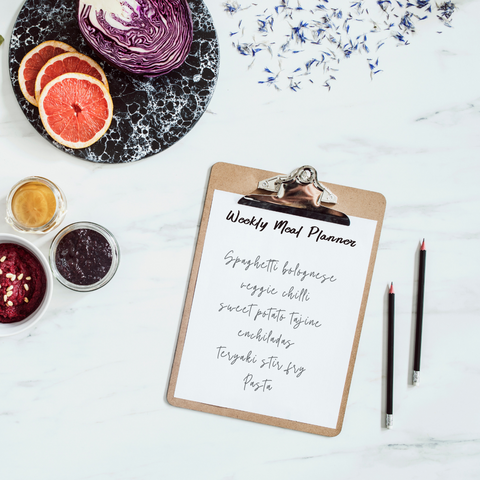 Weekly Meal Planner
Spaghetti bolognese
veggie chilli
sweet potato tajine
enchiladas
teryaki stir fry
Pasta